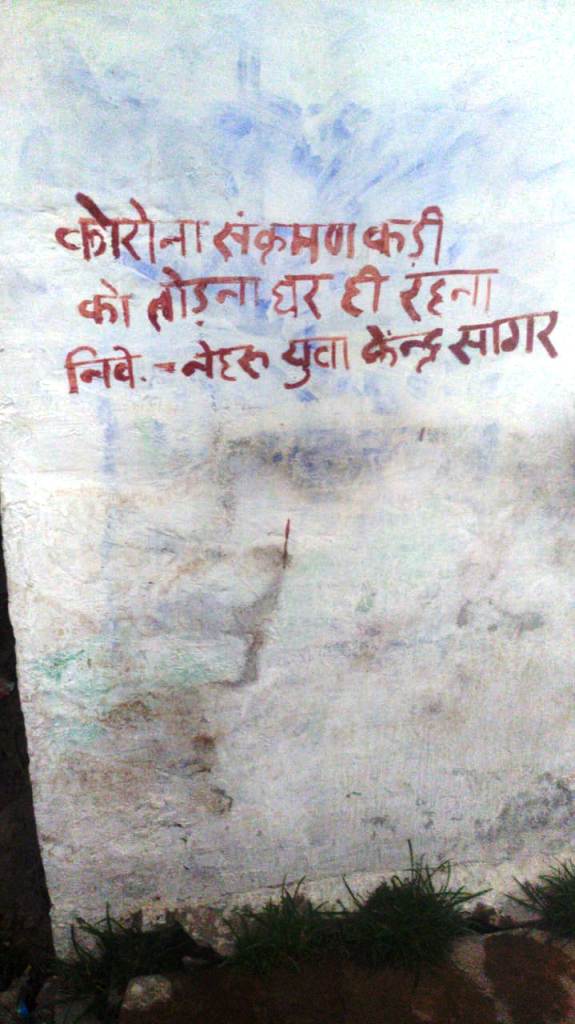 कोरोना संक्रमण कड़ी
को तोड़ना घर ही रहना
निवे. - नेहरू युवा केन्द्र सागर